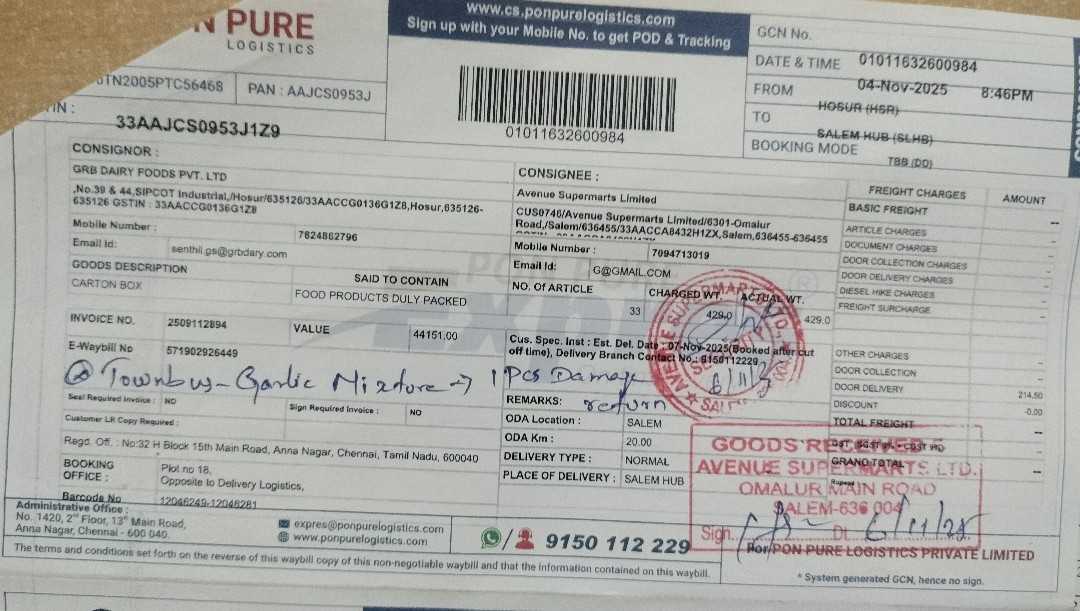 N PURE
LOGISTICS
www.cs.ponpurelogistics.com
Sign up with your Mobile No. to get POD & Tracking
TN2005PTC56468
PAN : AAJCS0953J
33AAJCS0953J1Z9
01011632600984
GCN No.
DATE & TIME 01011632600984
FROM 04-Nov-2025 8:46PM
HOSUR (HSR)
TO
SALEM HUB (SLHB)
BOOKING MODE
TBB (DD)
CONSIGNOR :
GRB DAIRY FOODS PVT. LTD
,No.39 & 44,SIPCOT Industrial,/Hosur/635126/33AACCG0136G1Z8,Hosur,635126-
635126 GSTIN : 33AACCG0136G1Z8
Mobile Number : 7824862796
Email Id: senthil.gs@grbdary.com
CONSIGNEE :
Avenue Supermarts Limited
CUS0746/Avenue Supermarts Limited/6301-Omalur
Road,/Salem/636455/33AACCA8432H1ZX,Salem,636455-636455
Mobile Number : 7094713019
Email Id: G@GMAIL.COM
GOODS DESCRIPTION SAID TO CONTAIN
CARTON BOX FOOD PRODUCTS DULY PACKED
NO. Of ARTICLE CHARGED WT. ACTUAL WT.
33 429.0 429.0
INVOICE NO. 2509112894 VALUE 44151.00
E-Waybill No 571902926449
Cus. Spec. Inst : Est. Del. Date : 07-Nov-2025(Booked after cut
off time), Delivery Branch Contact No.: 9150112229
@ Townbus - Garlic Mixture → 1 Pcs Damage
return
Seal Required Invoice : NO Sign Required Invoice : NO
Customer LR Copy Required :
REMARKS:
ODA Location : SALEM
ODA Km : 20.00
DELIVERY TYPE : NORMAL
PLACE OF DELIVERY : SALEM HUB
Regd. Off. : No:32 H Block 15th Main Road, Anna Nagar, Chennai, Tamil Nadu, 600040
BOOKING OFFICE : Plot no 18,
Opposite to Delivery Logistics,
Barcode No 12046249-12046281
FREIGHT CHARGES AMOUNT
BASIC FREIGHT --
ARTICLE CHARGES -
DOCUMENT CHARGES -
DOOR COLLECTION CHARGES -
DOOR DELIVERY CHARGES -
DIESEL HIKE CHARGES -
FREIGHT SURCHARGE -
OTHER CHARGES -
DOOR COLLECTION -
DOOR DELIVERY 214.50
DISCOUNT -0.00
TOTAL FREIGHT --
GRAND TOTAL --
AVENUE SUPERMARTS LTD.
6/11/
GOODS RECEIVED
AVENUE SUPERMARTS LTD.
OMALUR MAIN ROAD
SALEM-636 004
Sign. Dt. 6/11/25
For PON PURE LOGISTICS PRIVATE LIMITED
* System generated GCN, hence no sign.
Administrative Office :
No. 1420, 2nd Floor, 13th Main Road,
Anna Nagar, Chennai - 600 040.
expres@ponpurelogistics.com
www.ponpurelogistics.com
9150 112 229
The terms and conditions set forth on the reverse of this waybill copy of this non-negotiable waybill and that the information contained on this waybill.